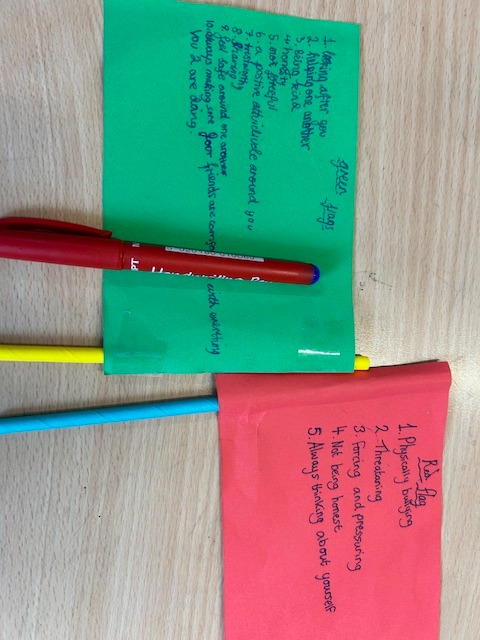 green flags
1. looking after you
2. helping one another
3. Being kind
4. honesty
5. not forceful
6. a positive attuidicole around you
7. trustworthy
8. sharing
9. feel safe around one another
10. always making sure your friends are with everthing
you 2 are doing.
Red flag
1. Physically bullying
2. Threataning
3. Forcing and pressuring
4. Not being honest
5. Always thinking about yourself
PT
Handwriting